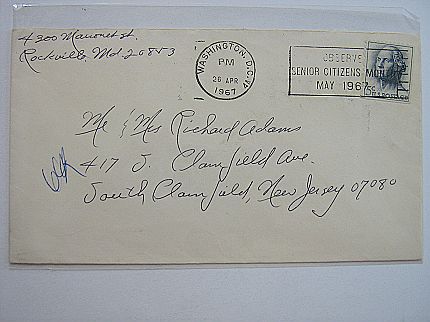 4300 St.
Rockville Md. 20853
WASHINGTON, D.C.
PM
26 APR
1967
OBSERVE
SENIOR CITIZENS MONTH
MAY 1967
Mr & Mrs Richard Adams
417 S. Plainfield Ave.
South Plainfield, New Jersey 07080